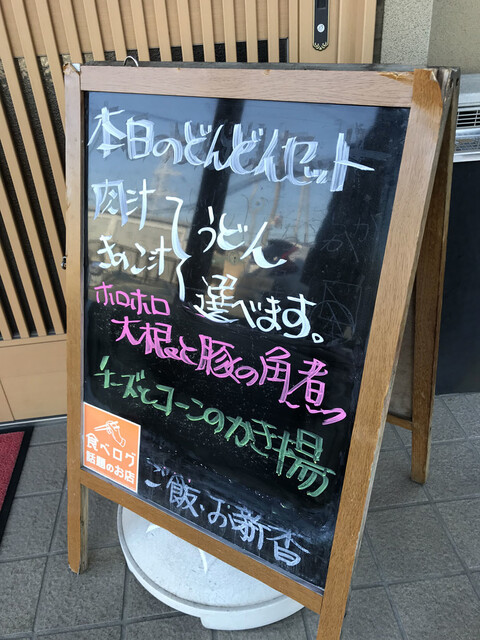 本日のどんどんセット
肉汁
きのこ汁
うどん
選べます。
ホロホロ
大根と豚の角煮
チーズとコーンのかき揚
ご飯・お新香
食べログ
話題のお店